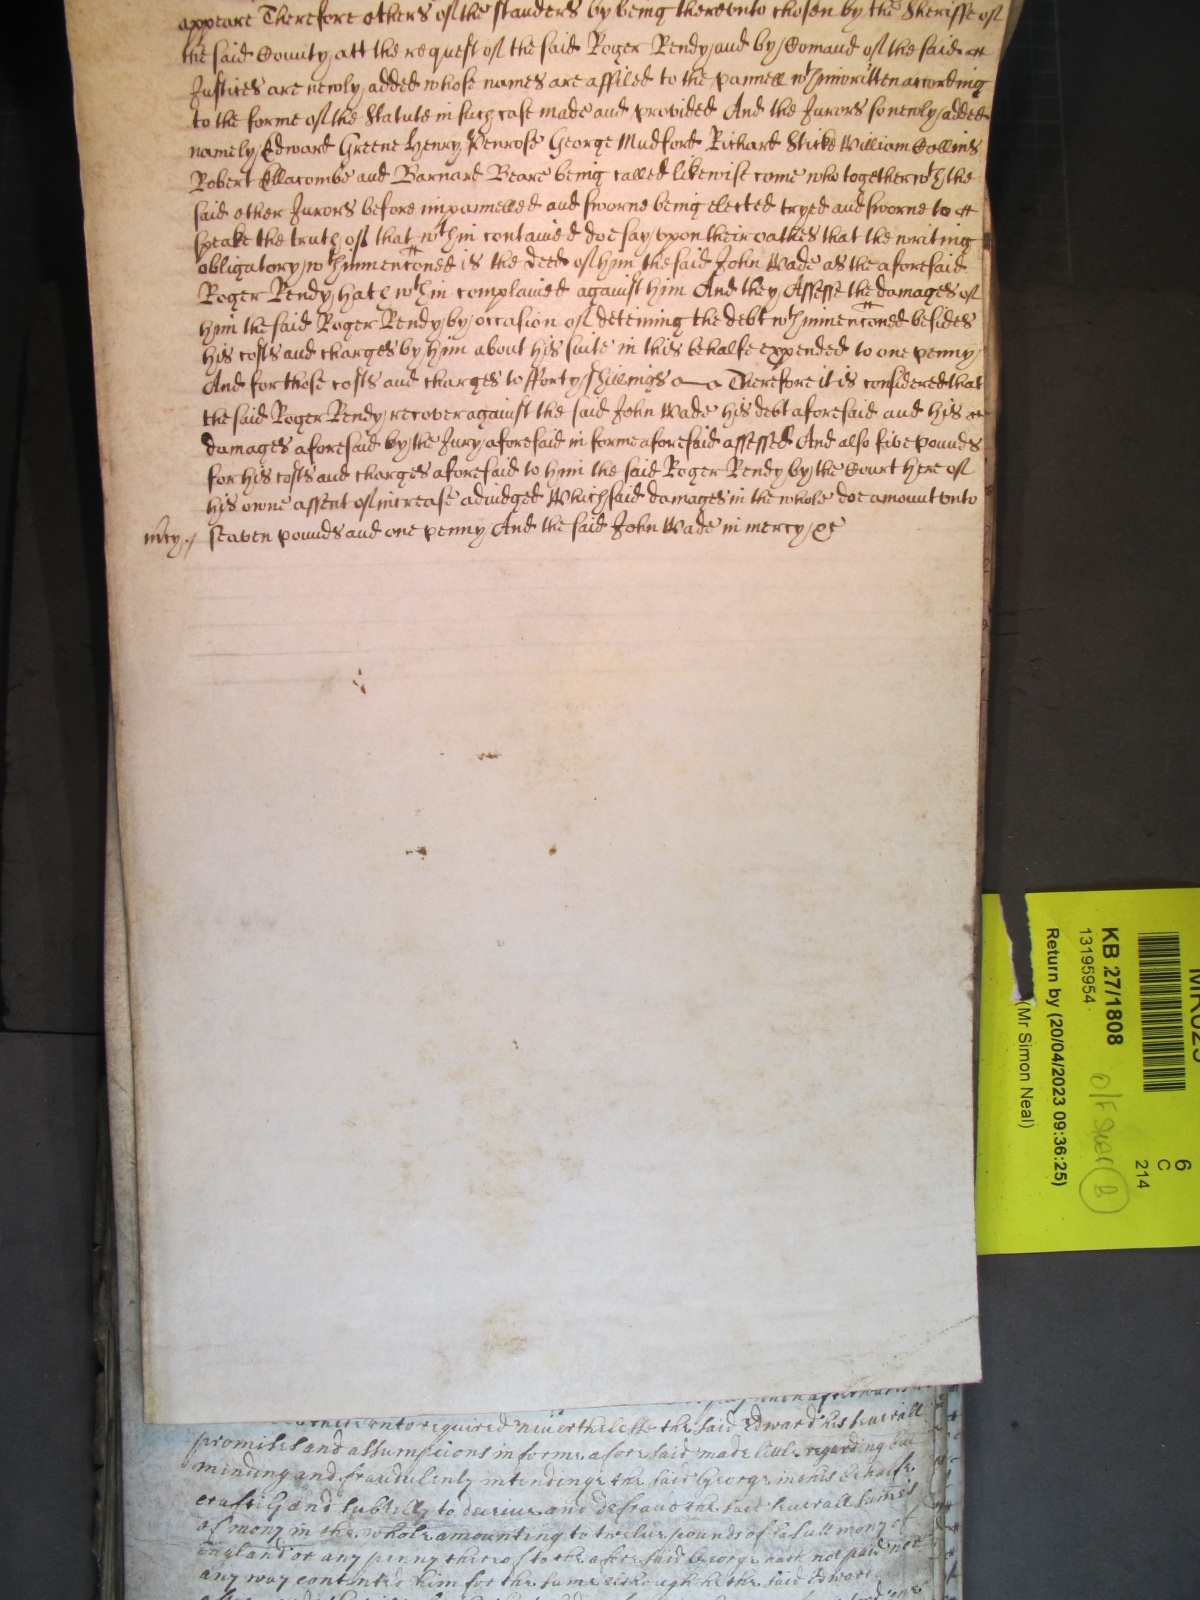 appeare Therefore others of the standers by being therevnto chosen by the Sheriffe of
the said County att the request of the said Roger Rendy and by Comand of the said
Justices are newly added whose names are affiled to the pannell wthinwritten according
to the forme of the Statute in such case made and provided And the Jurors so newly added
namely Edward Greene Henry Penrose George Mudford Richard Sticke William Collins
Robert Ellacombe and Barnard Beare being called likewise come who together wth the
said other Jurors before impannelled and sworne being elected tryed and sworne to
speake the truth of that wthin contained doe say vpon their oathes that the writing
obligatory wthinmenconed is the deed of him the said John Wade as the aforesaid
Roger Rendy hath wthin complained against him And they Assesse the damages of
him the said Roger Rendy by occasion of deteining the debt wthinmenconed besides
his costs and charges by him about his suite in this behalfe expended to one penny
And for those costs and charges to fforty shillings Therefore it is considered that
the said Roger Rendy recover against the said John Wade his debt aforesaid and his
damages aforesaid by the Jury aforesaid in forme aforesaid assessed And also five pounds
for his costs and charges aforesaid to him the said Roger Rendy by the Court here of
his owne assent of increase adiudged Which said damages in the whole doe amount vnto
mcy. seaven pounds and one penny And the said John Wade in mercy &c
therevnto required neverthelesse the said Edward his severall
promises and assumpcions in forme aforesaid made little regarding but
minding and fraudulently intendinge the said George in this behalfe
craftily and subtilly to deceive and defraud the said severall summes
of mony in the whole amounting to twelve pounds of lafull mony of
England or any penny thereof to the aforesaid George hath not paid nor
any way contented him for the same although he the said Edward
KB 27/1808
13195954
Return by (20/04/2023 09:36:25)
(Mr Simon Neal)
6
C
214
B